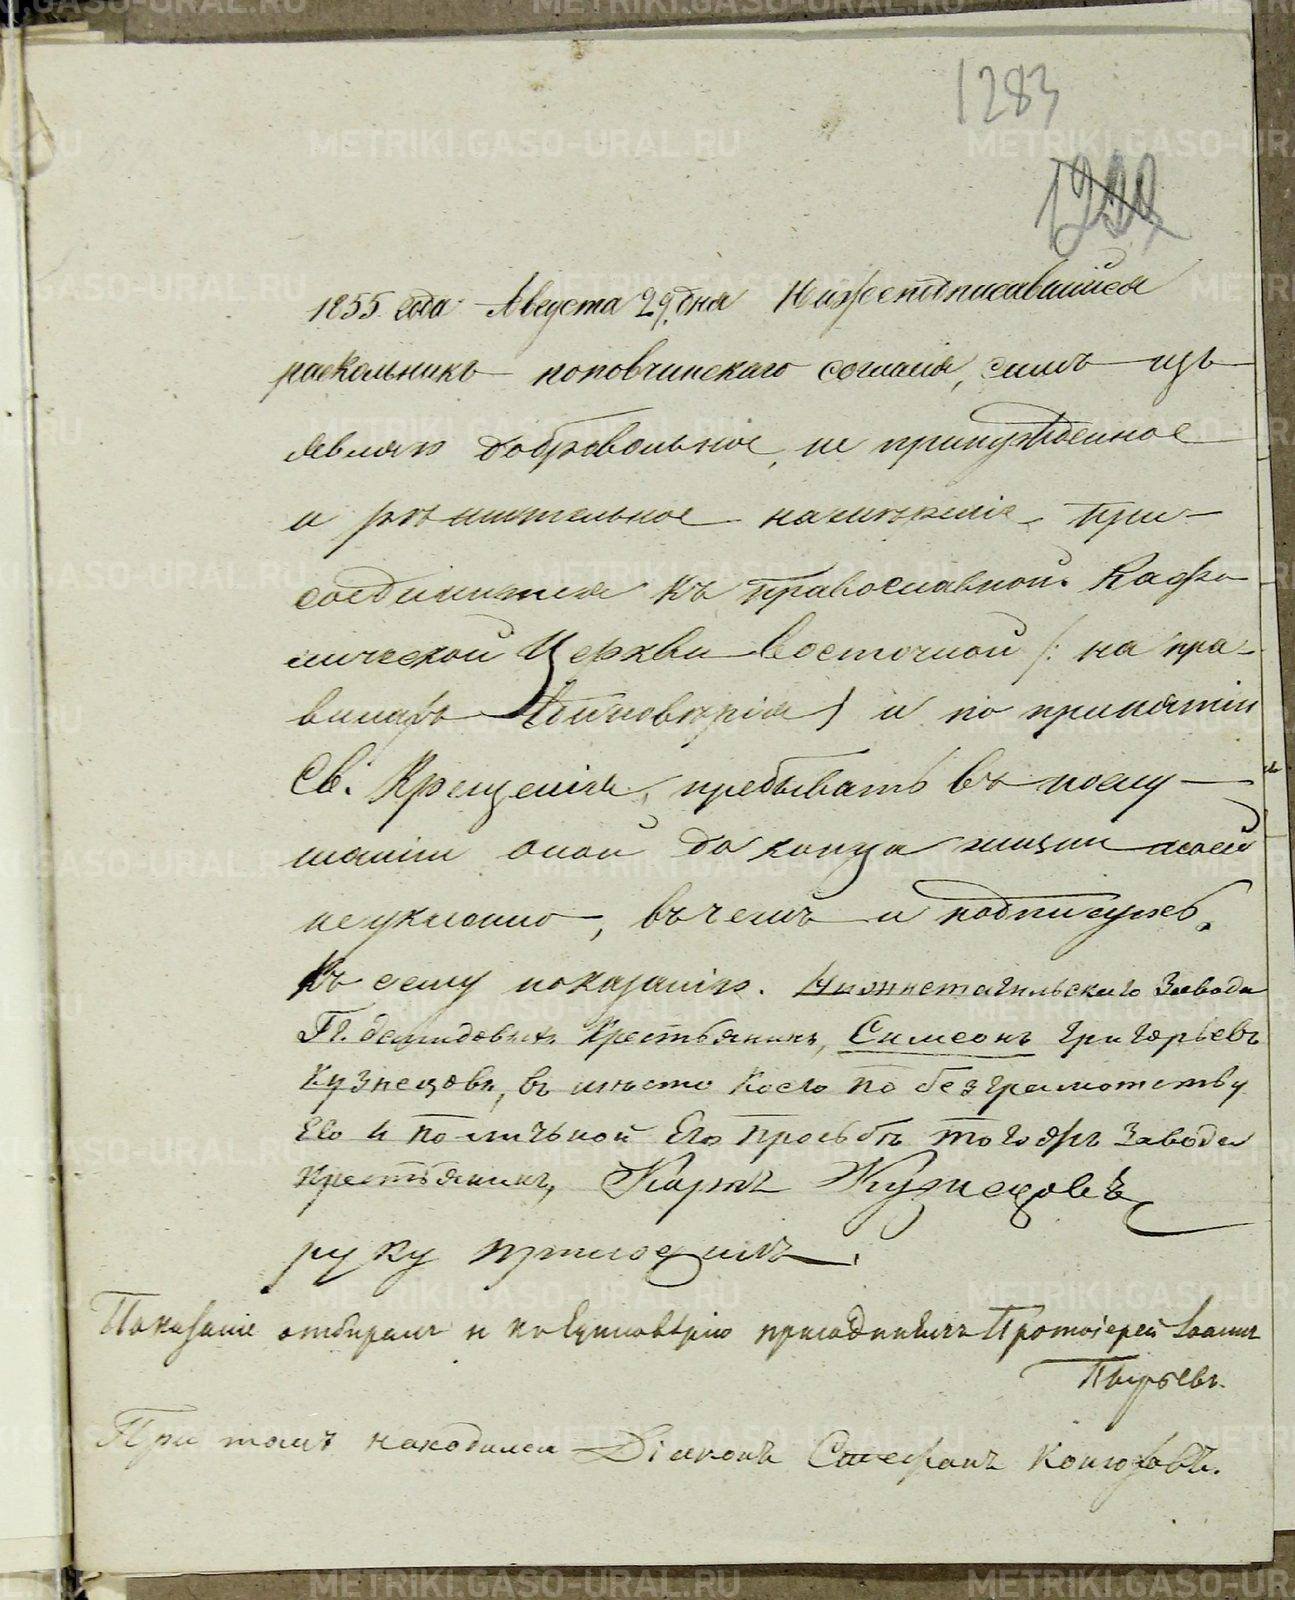 1283
1855 года Августа 29 дня Нижеподписавшійся
раскольникъ поповчинскаго согласія, симъ изъ
являю добровольное, не принужденное
и рѣшительное намѣреніе при-
соединиться къ православной Кафо
лической Церкви Восточной /: на пра-
вилахъ Единовѣрія / и по принятіи
Св. Крещенія, пребывать въ послу-
шаніи оной до конца жизни моей
неуклонно, въ чемъ и подписуюсь.
Къ сему показанію. Нижнетагильскаго Завода
Гг. Демидовыхъ Крестьянинъ, Симеонъ Григорьевъ
Кузнецовъ, въ мѣсто коего по безграмотству
Его и по личьной Его прозьбѣ того же Завода
Крестьянинъ, Карпъ Кузнецовъ
руку приложилъ.
Показаніе отбиралъ и къ Единовѣрію присоединилъ Протоіерей Іоаннъ
Пырьевъ.
При томъ находился Діаконъ Стефанъ Конюховъ.
METRIKI.GASO-URAL.RU